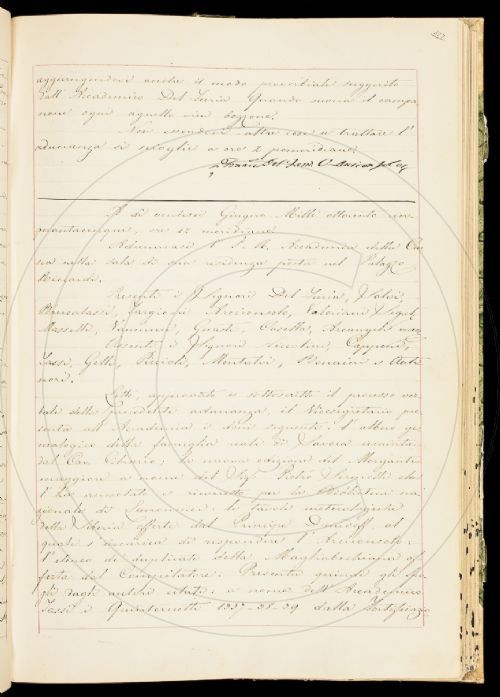 aggiungendovi anche il modo proverbiale suggerito
dall' Accademico Del Furia Quando suona il campa
none ogni agnello vien bozzone.
Non essendovi altre cose a trattare l'
adunanza si scioglie a ore 2 pomeridiane.
A dì ventisei Giugno Mille ottocento cin
quantacinque, ore 12 meridiane
Adunavasi l' I. e R. Accademia della Cru
sca nella sala di sua residenza posta nel Palazzo
Riccardi.
Presenti i Signori Del Furia, Salvi,
Brucalassi, Targioni, Arcangeli
Mazzetti, Vannucci, Guasti, Casella, Arcangeli
Assenti i Signori Capponi,
Tassi, Gelli, Mentalvi, Bencini e Anti
nori.
Letto, approvato e sottoscritto il processo ver
bale della precedente adunanza, il Vicesegretario pre
senta all' Accademia i doni seguenti: l' albero ge
nealogico della famiglia reale di Savoia
dal Cav. Cibrario; la nuova edizione del Morgante
maggiore a nome del Sig. Pietro Sermolli che
l' ha annotato e corretto per la Biblioteca na
zionale di Lemonnier: le tavole meteorologiche
della Siberia offerte dal Principe Demidoff, al
quale s' incarica di rispondere l' Arciconsolo:
l' elenco de' duplicati della Magliabechiana of
ferta dal Compilatore. Presenta quindi gli spo
gli dagli antichi citati: a nome dell' Accademico
Tassi i Quinternetti 1337-38-39 dalla